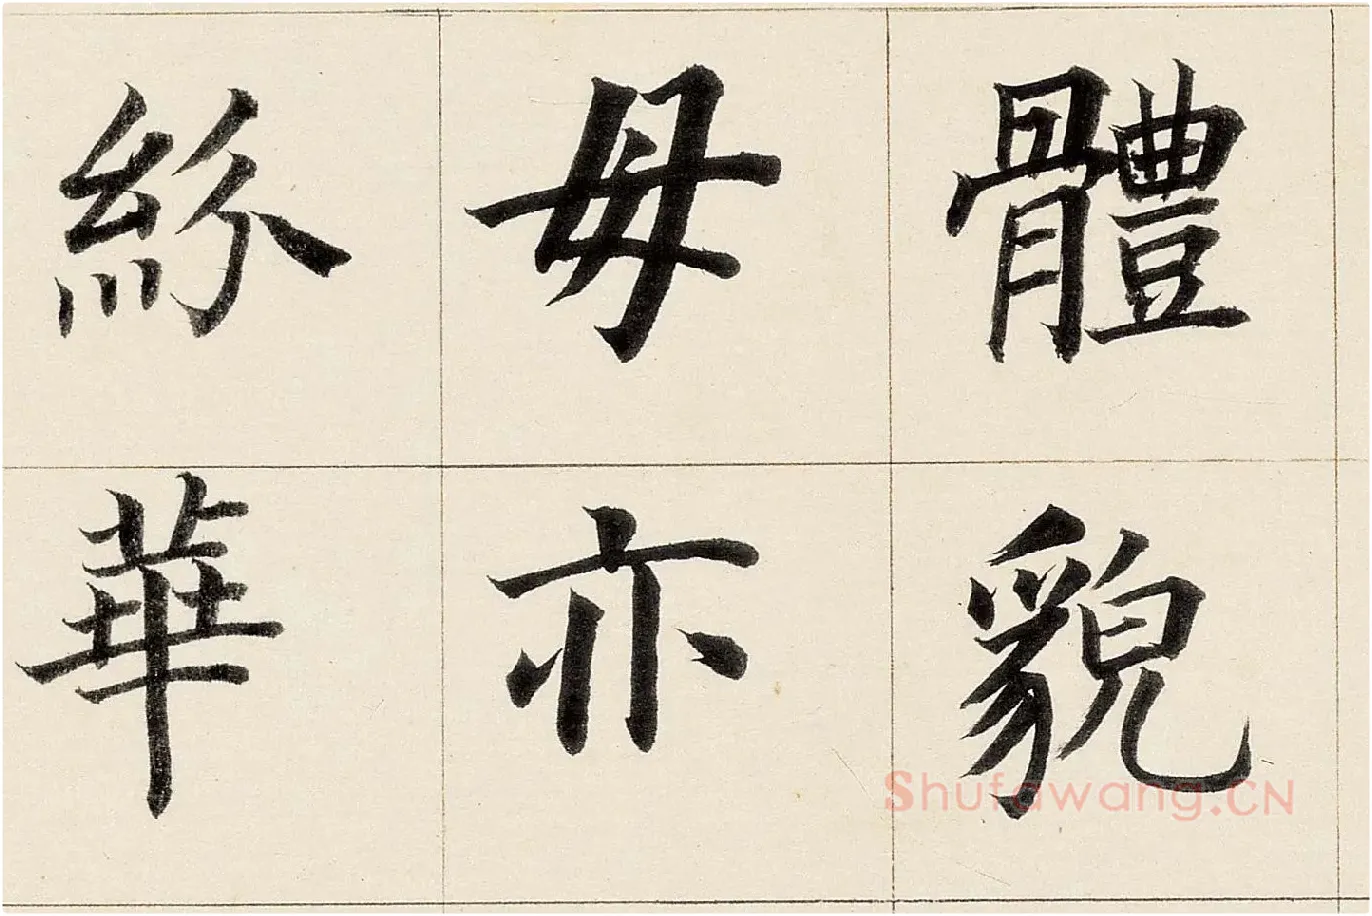 體貌
毋亦
紛華
Shufawang.CN